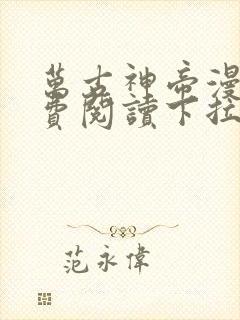 萬古神帝漫
費閱讀下拉
范永偉